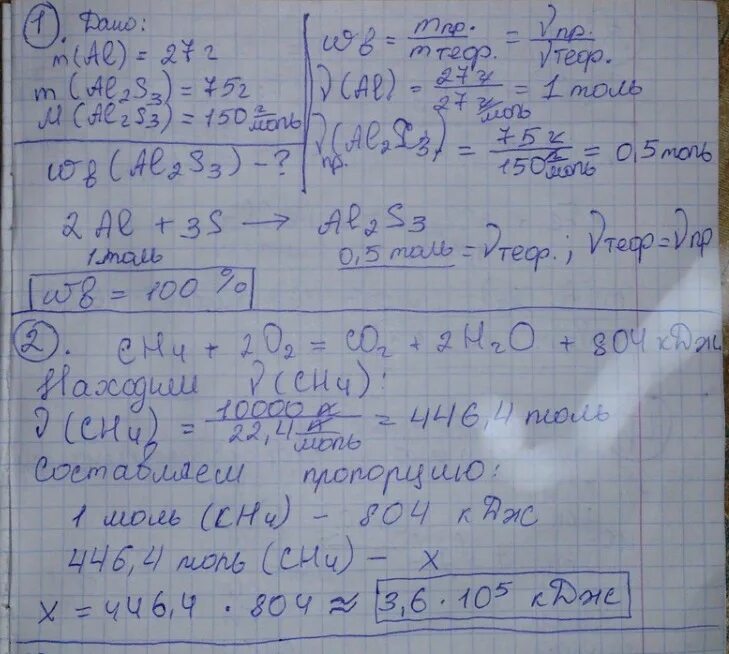 1 Дано:
m(Al) = 27г
m(Al₂S₃) = 75г
M(Al₂S₃) = 150 г/моль
wв(Al₂S₃) - ?
wв = mпр./mтеор. = νпр./νтеор.
ν(Al) = 27г/27г/моль = 1 моль
νпр.(Al₂S₃) = 75г/150г/моль = 0,5 моль
2Al + 3S → Al₂S₃
1 моль 0,5 моль = νтеор.; νтеор = νпр
wв = 100 %
2. CH₄ + 2O₂ = CO₂ + 2H₂O + 804 кДж
Находим ν(CH₄):
ν(CH₄) = 10000 л/22,4 л/моль = 446,4 моль
Составляем пропорцию:
1 моль (CH₄) - 804 кДж
446,4 моль (CH₄) - x
x = 446,4 · 804 ≈ 3,6 · 10⁵ кДж